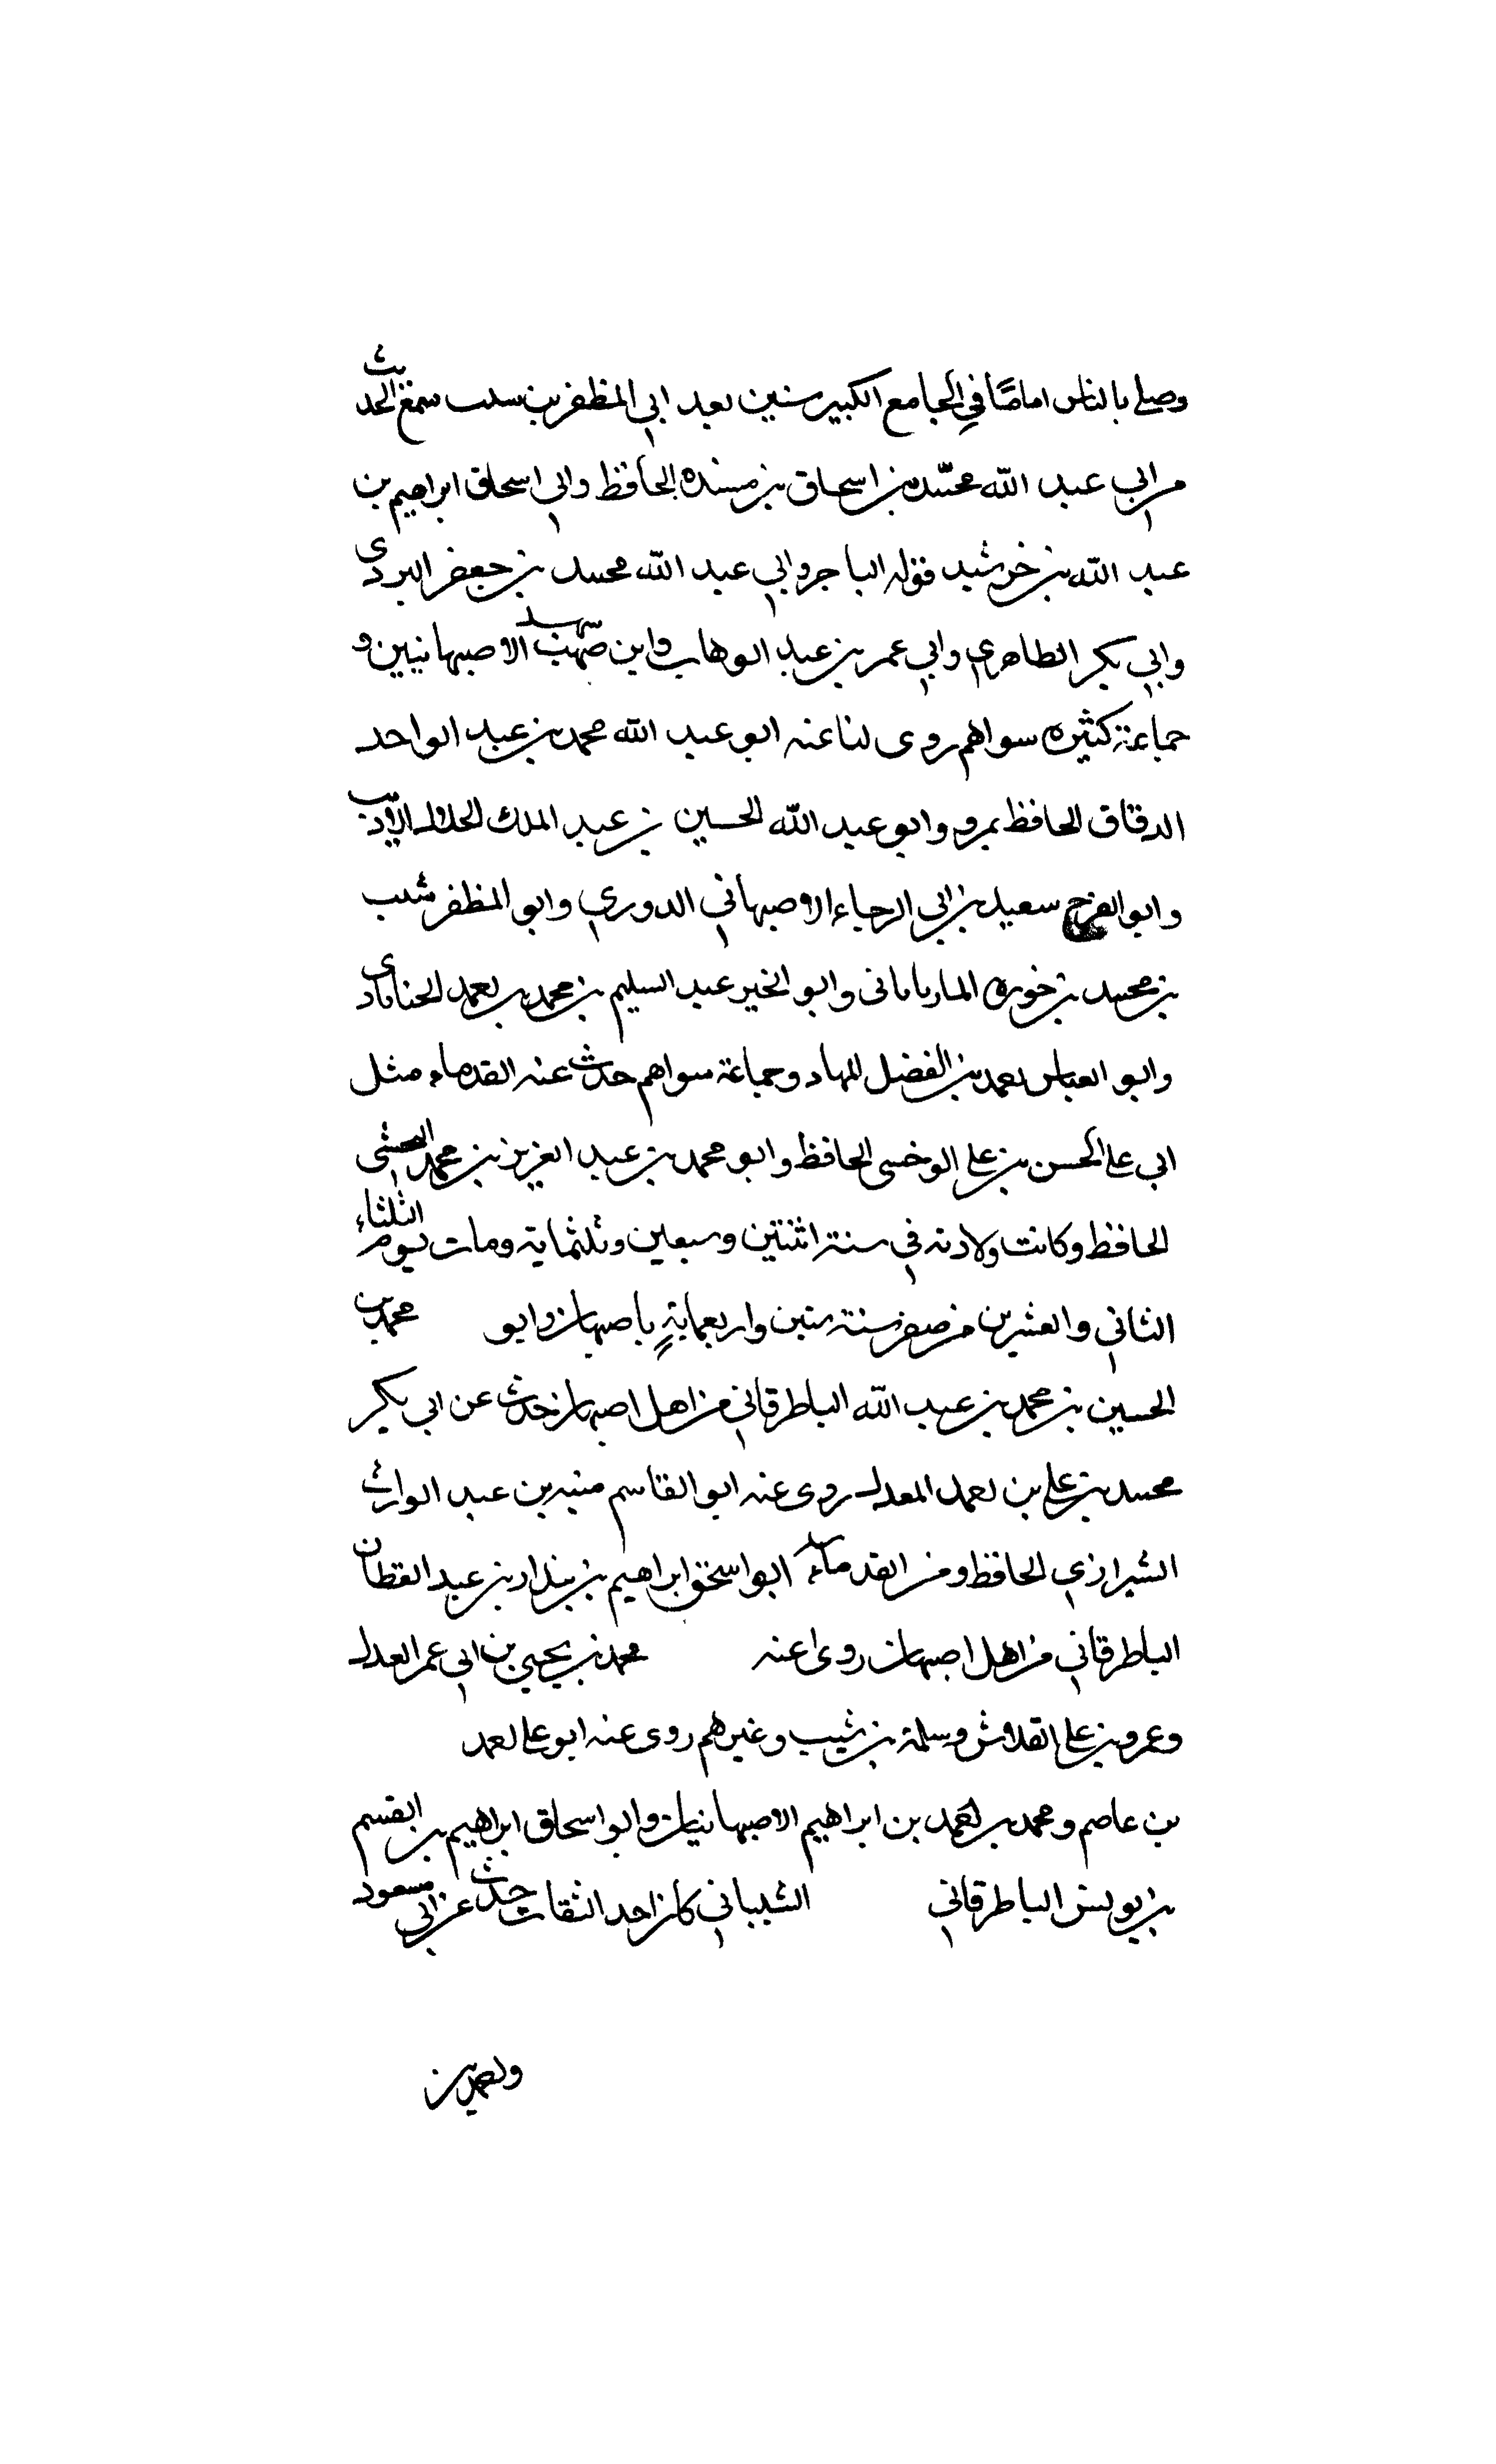 وصلى بالناس اماما في الجامع الكبير سنين بعد ابي المظفر بن سبب سمع الحديث
من ابي عبد الله محمد بن اسحاق بن منده الحافظ وابي اسحاق ابراهيم بن
عبد الله بن خرشيد قوله التاجر وابي عبد الله محمد بن جعفر اليزدي
وابي بكر الطاهري وابي عمر بن عبد الوهاب وابن شهمرد الاصبهانيين و
جماعة كثيره سواهم روى لنا عنه ابو عبد الله محمد بن عبد الواحد
الدقاق الحافظ بمرو وابو عبد الله الحسين بن عبد الملك الخلال الاديب
وابو الفرج سعيد بن ابي الرجاء الاصبهاني الدوري وابو المظفر شبيب
بن محمد بن خوره الماربانانى وابو الخير عبد السليم بن محمد بن احمد الحناباذى
وابو العباس احمد بن الفضل المهاد وجماعة سواهم حدث عنه القدماء مثل
ابي على الحسن بن على الوخسى الحافظ وابو محمد بن عبد العزيز بن محمد النخشبى
الحافظ وكانت ولادته في سنة اثنتين وسبعين وثلثماية ومات يوم الثلثاء
الثاني والعشرين من صفر سنة ستين واربعماية باصبهان وابو محمد بن
الحسين بن محمد بن عبد الله الباطرقاني من اهل اصبهان حدث عن ابي بكر
محمد بن على بن احمد المعدل روى عنه ابو القاسم منبه بن عبد الوارث
الشيرازي الحافظ ومن القدماء ابو اسحق ابراهيم بن بندار بن عبد القطان
الباطرقاني من اهل اصبهان روى عنه محمد بن يحيى بن ابي عمر العدل
وعمرو بن على القلاس وسلمة بن شيب وغيرهم روى عنه ابو على احمد
بن عاصم ومحمد بن احمد بن ابراهيم الاصبهانيان وابو اسحاق ابراهيم بن القسم
بن يونس الباطرقاني الشيباني كان احد الثقات حدث عن ابي مسعود
واحمد بن